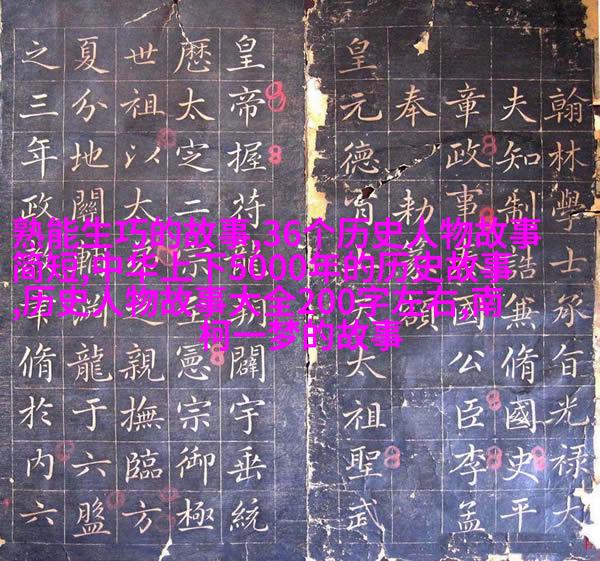 翰林學士承旨光祿大
夫知制誥兼脩國史平
章政事國公臣李孟
奉勅額
皇元德太祖聖武
皇帝握符闢宇垂統
厯太定二憲宗御極
世祖以太親撫臨方
夏分地關龍于六盤
之三年政脩於内六
熟能生巧的故事,36个历史人物故事
简短,中华上下5000年的历史故事
,历史人物故事大全200字左右,南
柯一梦的故事